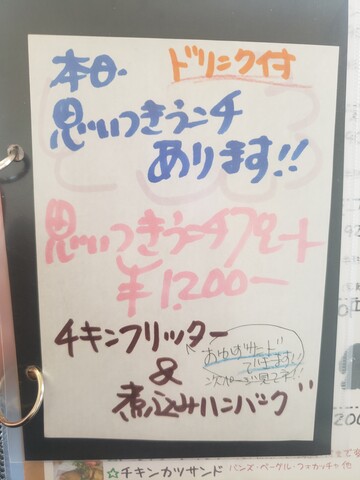 本日 ドリンク付
思いつきランチ
あります!!
思いつきランチプレート
¥1,200ー
チキンフリッター
&
煮込みハンバーグ
サンド
できます!!
次ページ見て下さい!!
☆チキンカツサンド バンズ・ベーグル・フォカッチャ 他